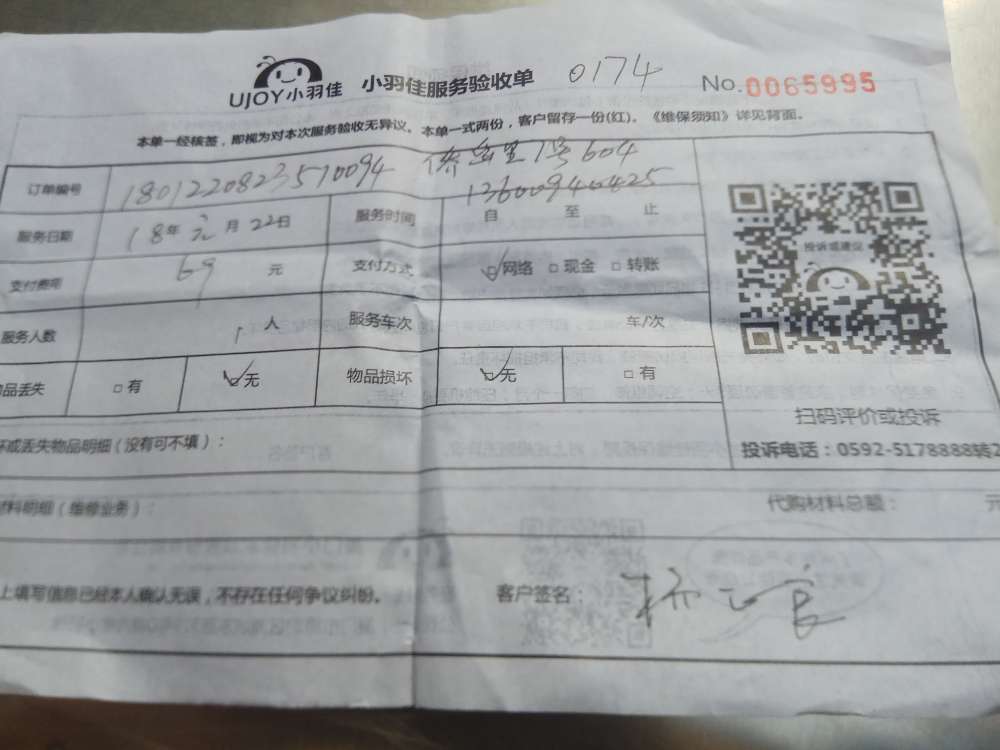 UJOY小羽佳 小羽佳服务验收单 0174 No.0065995
本单一经核签，即视为对本次服务验收无异议。本单一式两份，客户留存一份(红)。《维保须知》详见背面。
订单编号 1801220823510094 1号604
13600940425
服务日期 18年 元月22日 服务时间 自 至 止
支付费用 69 元 支付方式 网络 现金 转账
投诉或建议
服务人数 1人 服务车次 车/次
品丢失 有 无 物品损坏 无 有
扫码评价或投诉
坏或丢失物品明细（没有可不填）：
投诉电话：0592-5178888转2
材料明细（维修业务）： 代购材料总额： 元
上填写信息已经本人确认无误，不存在任何争议纠纷。 客户签名：